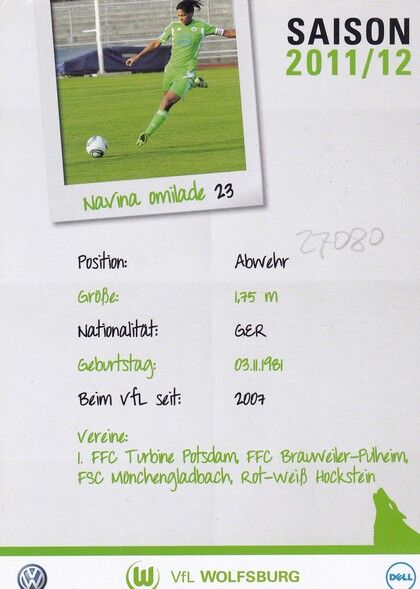 SAISON
2011/12
Navina omilade 23
27080
Position: Abwehr
Größe: 1,75 m
Nationalität: GER
Geburtstag: 03.11.1981
Beim VfL seit: 2007
Vereine:
1. FFC Turbine Potsdam, FFC Brauweiler-Pulheim,
FSC Mönchengladbach, Rot-Weiß Hockstein
VfL WOLFSBURG
DELL